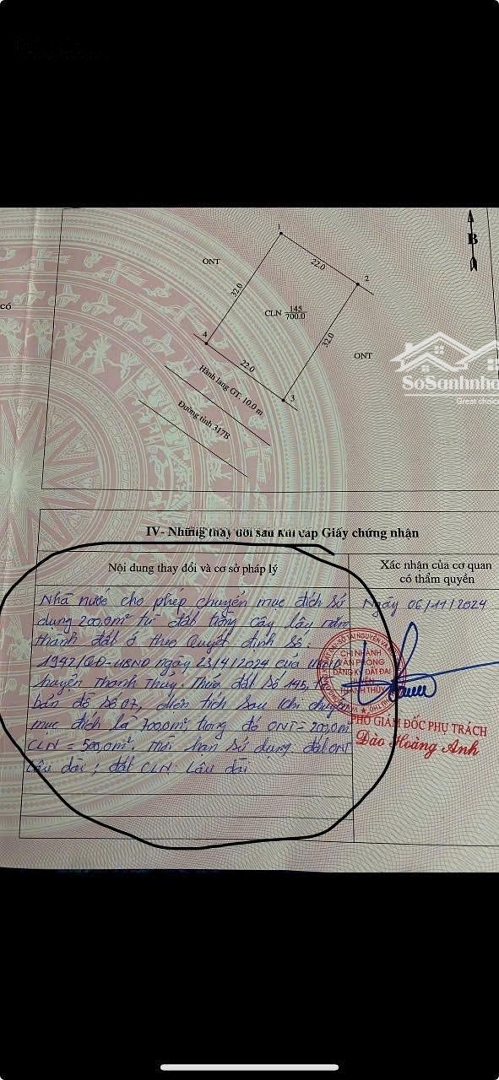 B
1
ONT
22.0
2
32.0
có
CLN 145/700.0
32.0
4
ONT
22.0
SoSanhnha
Great choice
3
Hành lang GT: 10.0 m
Đường tỉnh 317B
IV- Những thay đổi sau khi cấp Giấy chứng nhận
Nội dung thay đổi và cơ sở pháp lý
Xác nhận của cơ quan
có thẩm quyền
Nhà nước cho phép chuyển mục đích sử
dụng 200,0m² từ đất trồng cây lâu năm
thành đất ở theo Quyết định số:
1942/QĐ-UBND ngày 23/9/2024 của
huyện Thanh Thủy. Thửa đất số 145,
bản đồ số 07, diện tích sau khi chuyển
mục đích là 700,0m², trong đó ONT = 200,0m²
CLN = 500,0m². Thời hạn sử dụng đất ONT
Lâu dài; đất CLN: Lâu dài
Ngày 06/11/2024
CHI NHÁNH
VĂN PHÒNG
ĐĂNG KÝ ĐẤT ĐAI
THANH THỦY
PHÓ GIÁM ĐỐC PHỤ TRÁCH
Đào Hoàng Anh